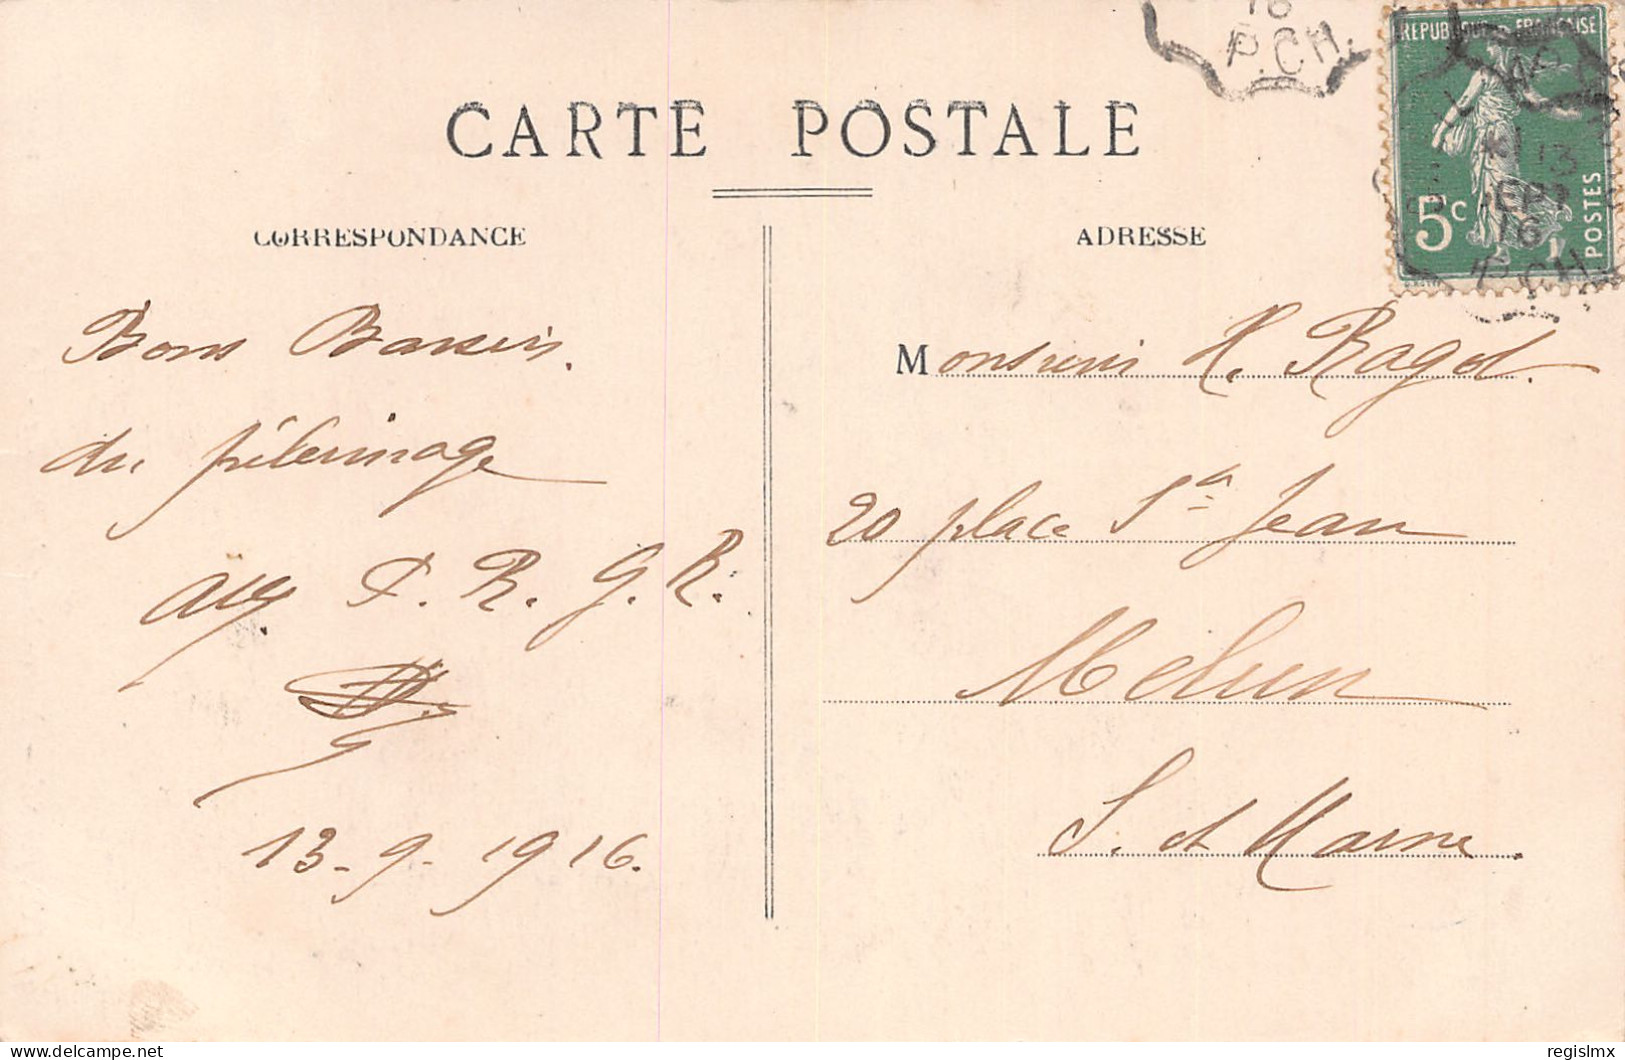 CARTE POSTALE
CORRESPONDANCE
ADRESSE
REPUBLIQUE FRANÇAISE
5c
POSTES
13
SEPT
16
P.CH.
16
P.CH.
Bons Baisers.
du pélerinage
aux P. R. G. R.
13-9-1916.
Monsieur H. Ragot.
20 place St Jean
Melun
S. et Marne.
delcampe.net
regislmx